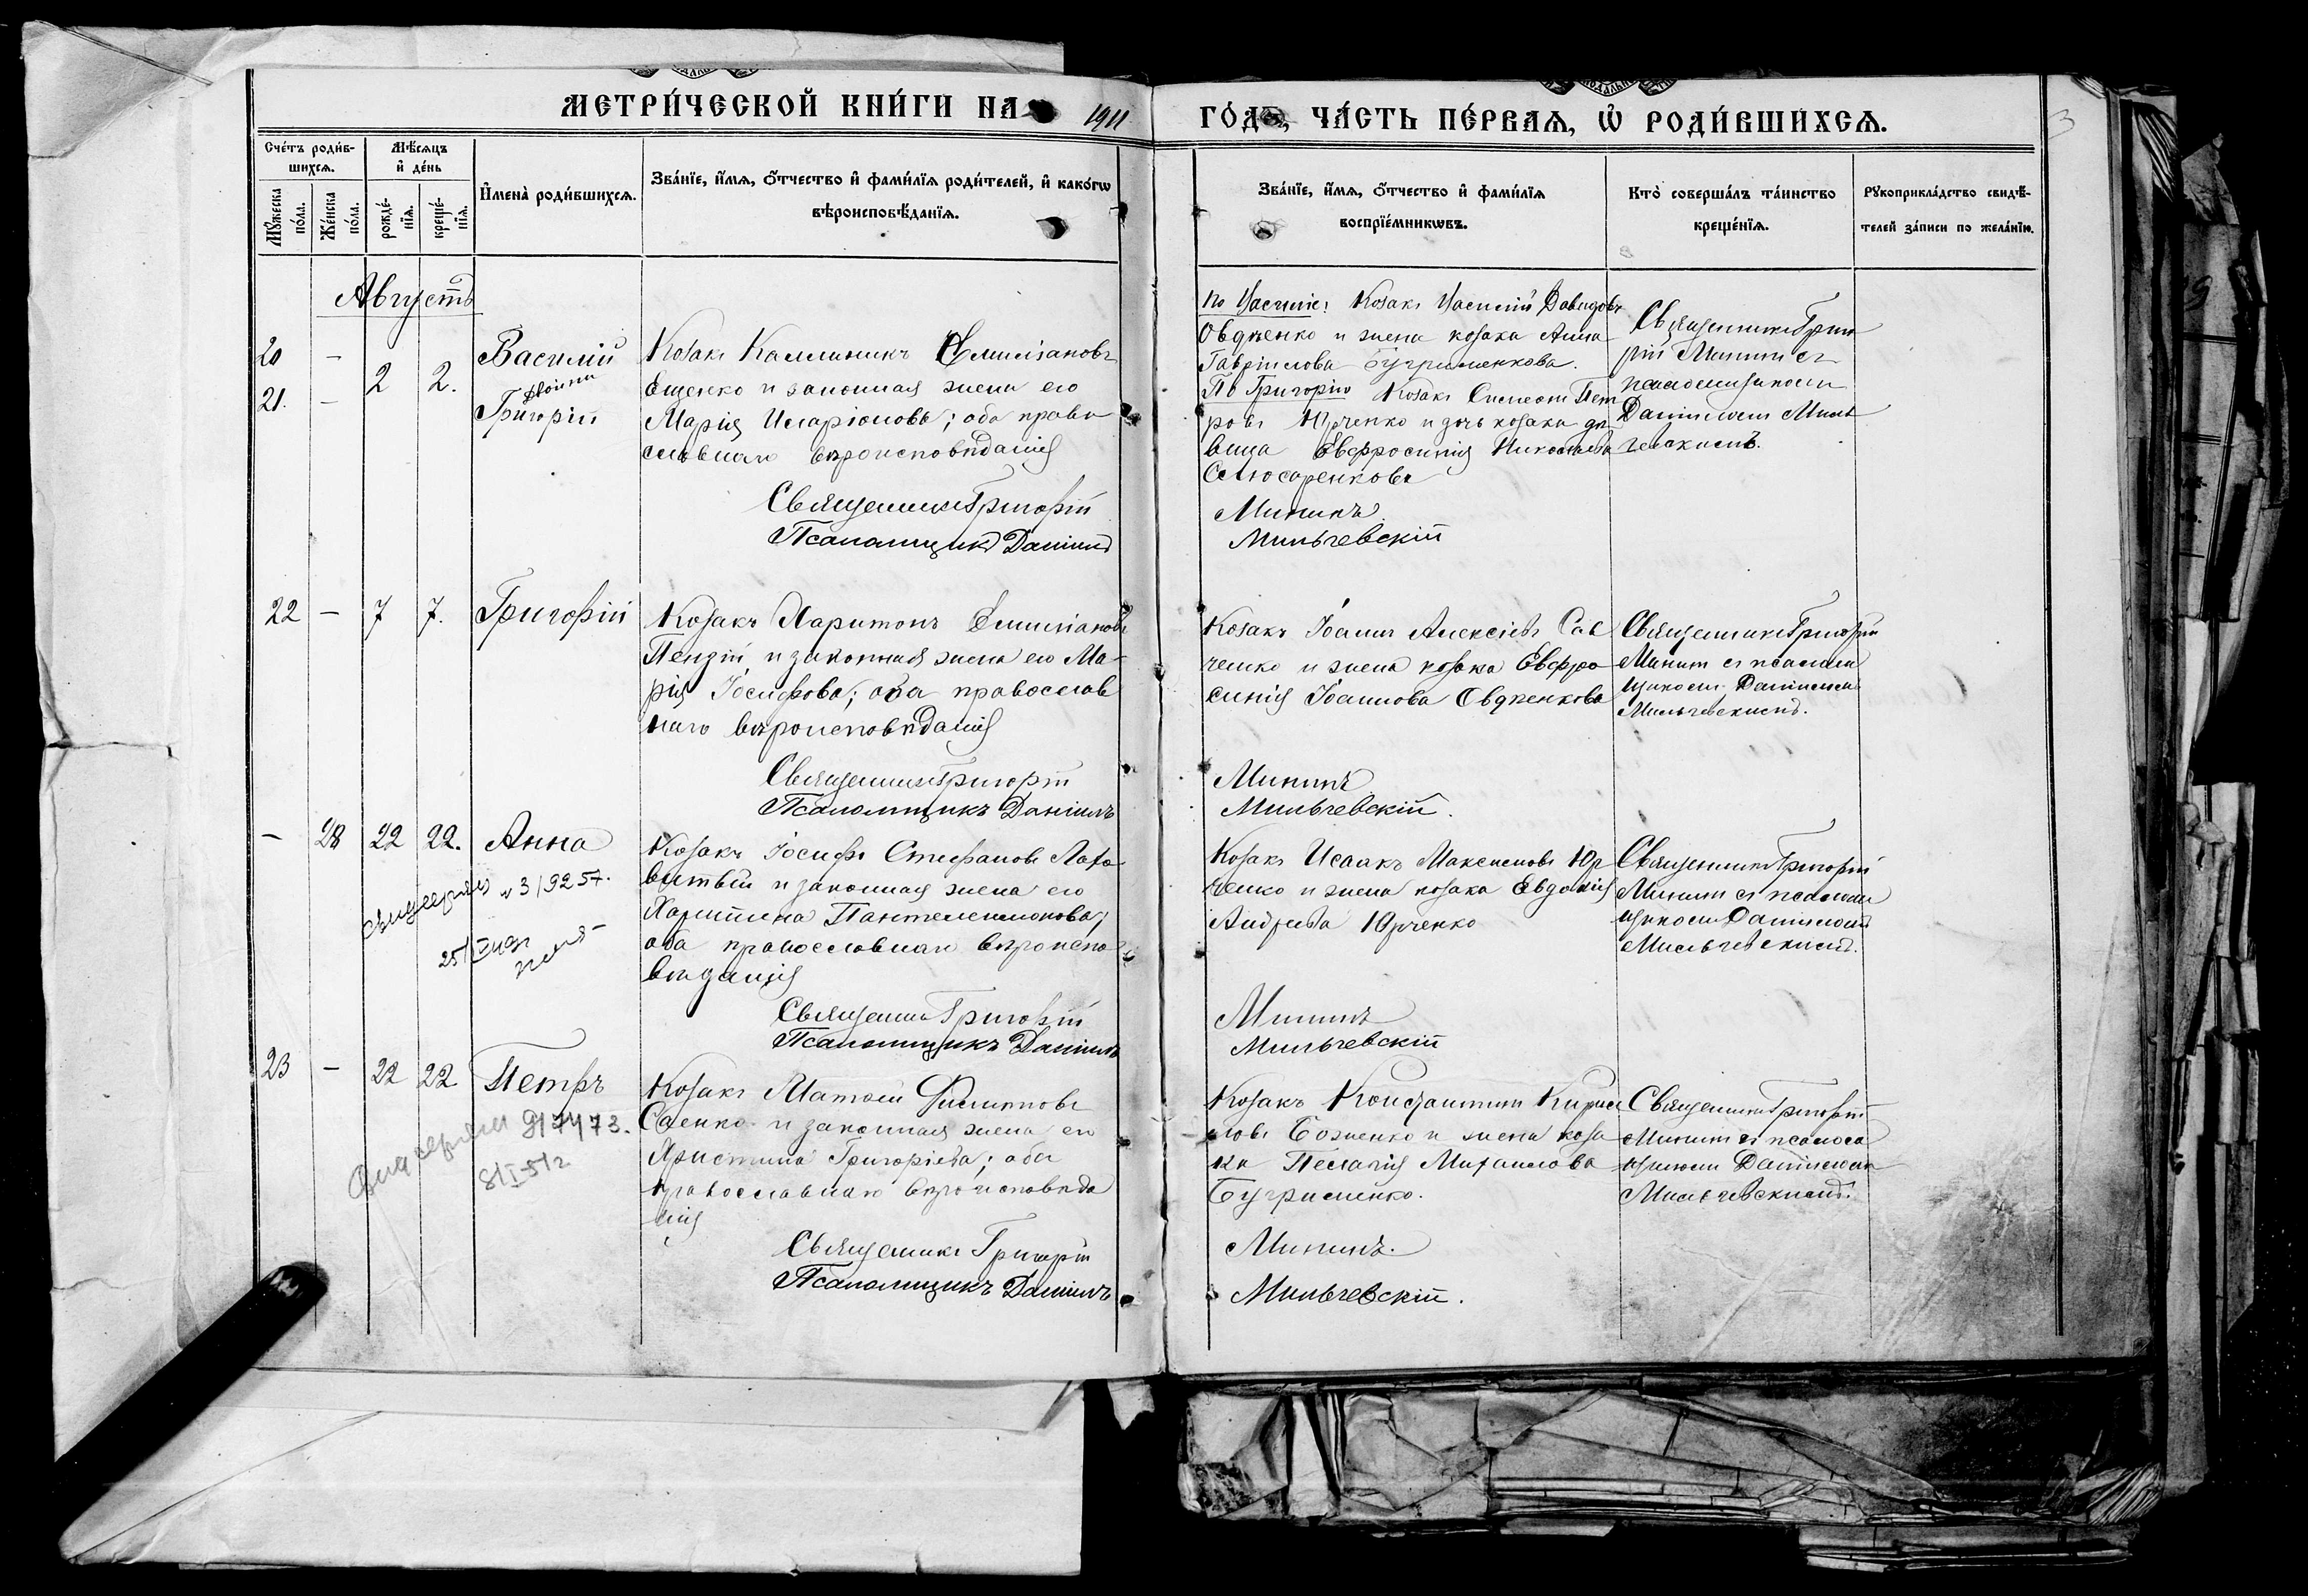 МЕТРИ́ЧЕСКОЙ КНИ́ГИ НА 1911 ГО́ДЪ, ЧА́СТЬ ПЕ́РВАЯ, Ѡ҆ РОДИ́ВШИХСЯ.
Сче́тъ роди́в-
шихся.
Мѣ́сяцъ
и҆ де́нь
Мꙋ́жеска
по́ла.
Же́нска
по́ла.
рожде́-
нїя.
креще́-
нїя.
И҆мена̀ роди́вшихся.
Зва́нїе, и҆́мя, ѻ҆́тчество и҆ фами́лїя роди́телей, и҆ како́гѡ
вѣроисповѣ́данїя.
Зва́нїе, и҆́мя, ѻ҆́тчество и҆ фами́лїя
воспрїе́мникѡвъ.
Кто̀ соверша́лъ та́инство
креще́нїя.
Рꙋкоприкла́дство свидѣ́-
телей за́писи по жела́нїю.
Августъ
20 –
21. –
2 2.
Василій
двойни
Григорій
Козакъ Каллиникъ Емиліановъ
Ещенко и законная жена его
Марія Иларіонова; оба право
славнаго вѣроисповѣданія
Священникъ Григорій
Псаломщикъ Даніилъ
Козакъ Василій Давидовъ
Овдѣенко и жена козака Анна
Гавріилова Бугрименкова.
По Григорію Козакъ Симеонъ Пет
ровъ Юрченко и дочь козака дѣ
вица Евфросинія Николаева
Слюсаренкова
Мининъ
Мильчевскій
Священникъ Григо
рій Мининъ съ
псаломщикомъ
Даніиломъ Миль
чевскимъ.
22 – 7 7. Григорій
Козакъ Харитонъ Емиліановъ
Пендій и законная жена его Ма-
рія Іосифова; оба православ
наго вѣроисповѣданія
Священникъ Григорій
Псаломщикъ Даніилъ
Козакъ Іоаннъ Алексіевъ Сав
ченко и жена козака Евфро
синія Іоаннова Овдѣенкова
Мининъ
Мильчевскій.
Священникъ Григорій
Мининъ съ псалом
щикомъ Даніиломъ
Мильчевскимъ.
– 28 22 22. Анна
Козакъ Іосифъ Стефановъ
и законная жена его
Харитина Пантелеимонова;
оба православнаго вѣроиспо
вѣданія
Священникъ Григорій
Псаломщикъ Даніилъ
Козакъ Исаакъ Максимовъ Юр
ченко и жена козака Евдокія
Андреева Юрченко
Мининъ
Мильчевскій
Священникъ Григорій
Мининъ съ псалом
щикомъ Даніиломъ
Мильчевскимъ.
23 – 22 22 Петръ
Козакъ Матѳей Филиповъ
Саенко и законная жена его
Христина Григоріева; оба
православнаго вѣроисповѣда
нія
Священникъ Григорій
Псаломщикъ Даніилъ
Козакъ Константинъ Кирил
ловъ Боженко и жена коза
ка Пелагія Михаилова
Бугрименко.
Мининъ.
Мильчевскій.
Священникъ Григорій
Мининъ съ псалом
щикомъ Даніиломъ
Мильчевскимъ.